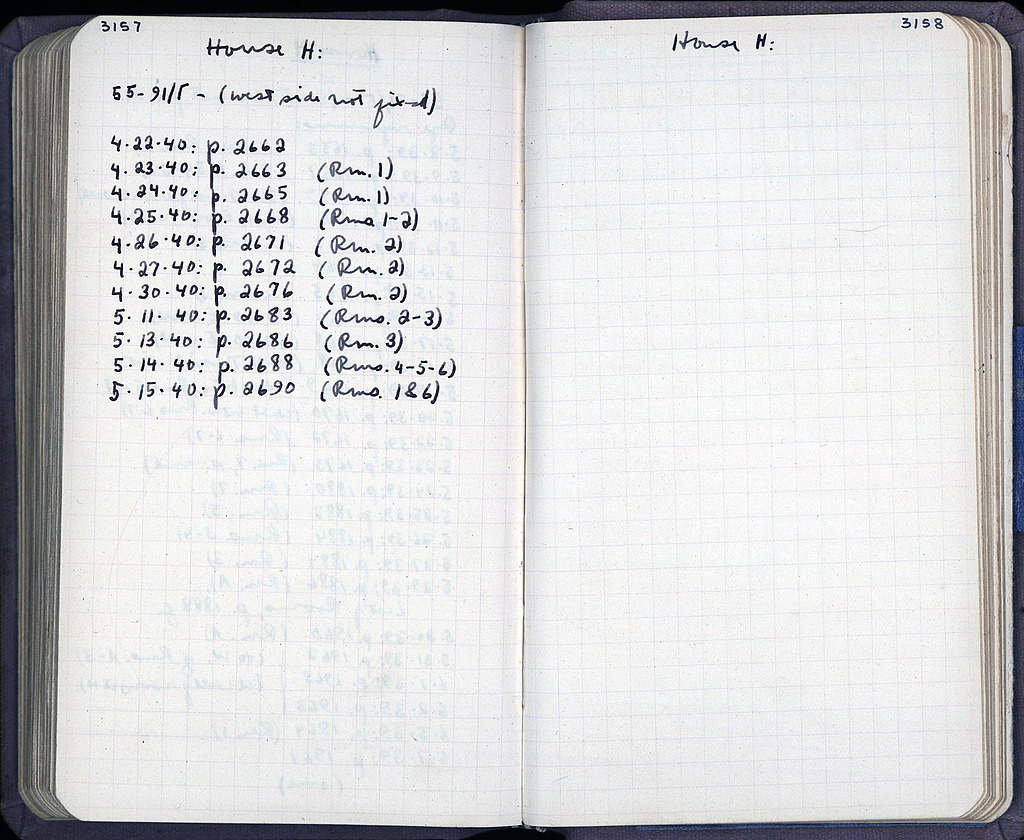 3157
House H:
55-91/Γ - (west side not fixed)
4.22.40: p. 2662
4.23.40: p. 2663 (Rm. 1)
4.24.40: p. 2665 (Rm. 1)
4.25.40: p. 2668 (Rms. 1-2)
4.26.40: p. 2671 (Rm. 2)
4.27.40: p. 2672 (Rm. 2)
4.30.40: p. 2676 (Rm. 2)
5.11.40: p. 2683 (Rms. 2-3)
5.13.40: p. 2686 (Rm. 3)
5.14.40: p. 2688 (Rms. 4-5-6)
5.15.40: p. 2690 (Rms. 1&6)
3158
House H: